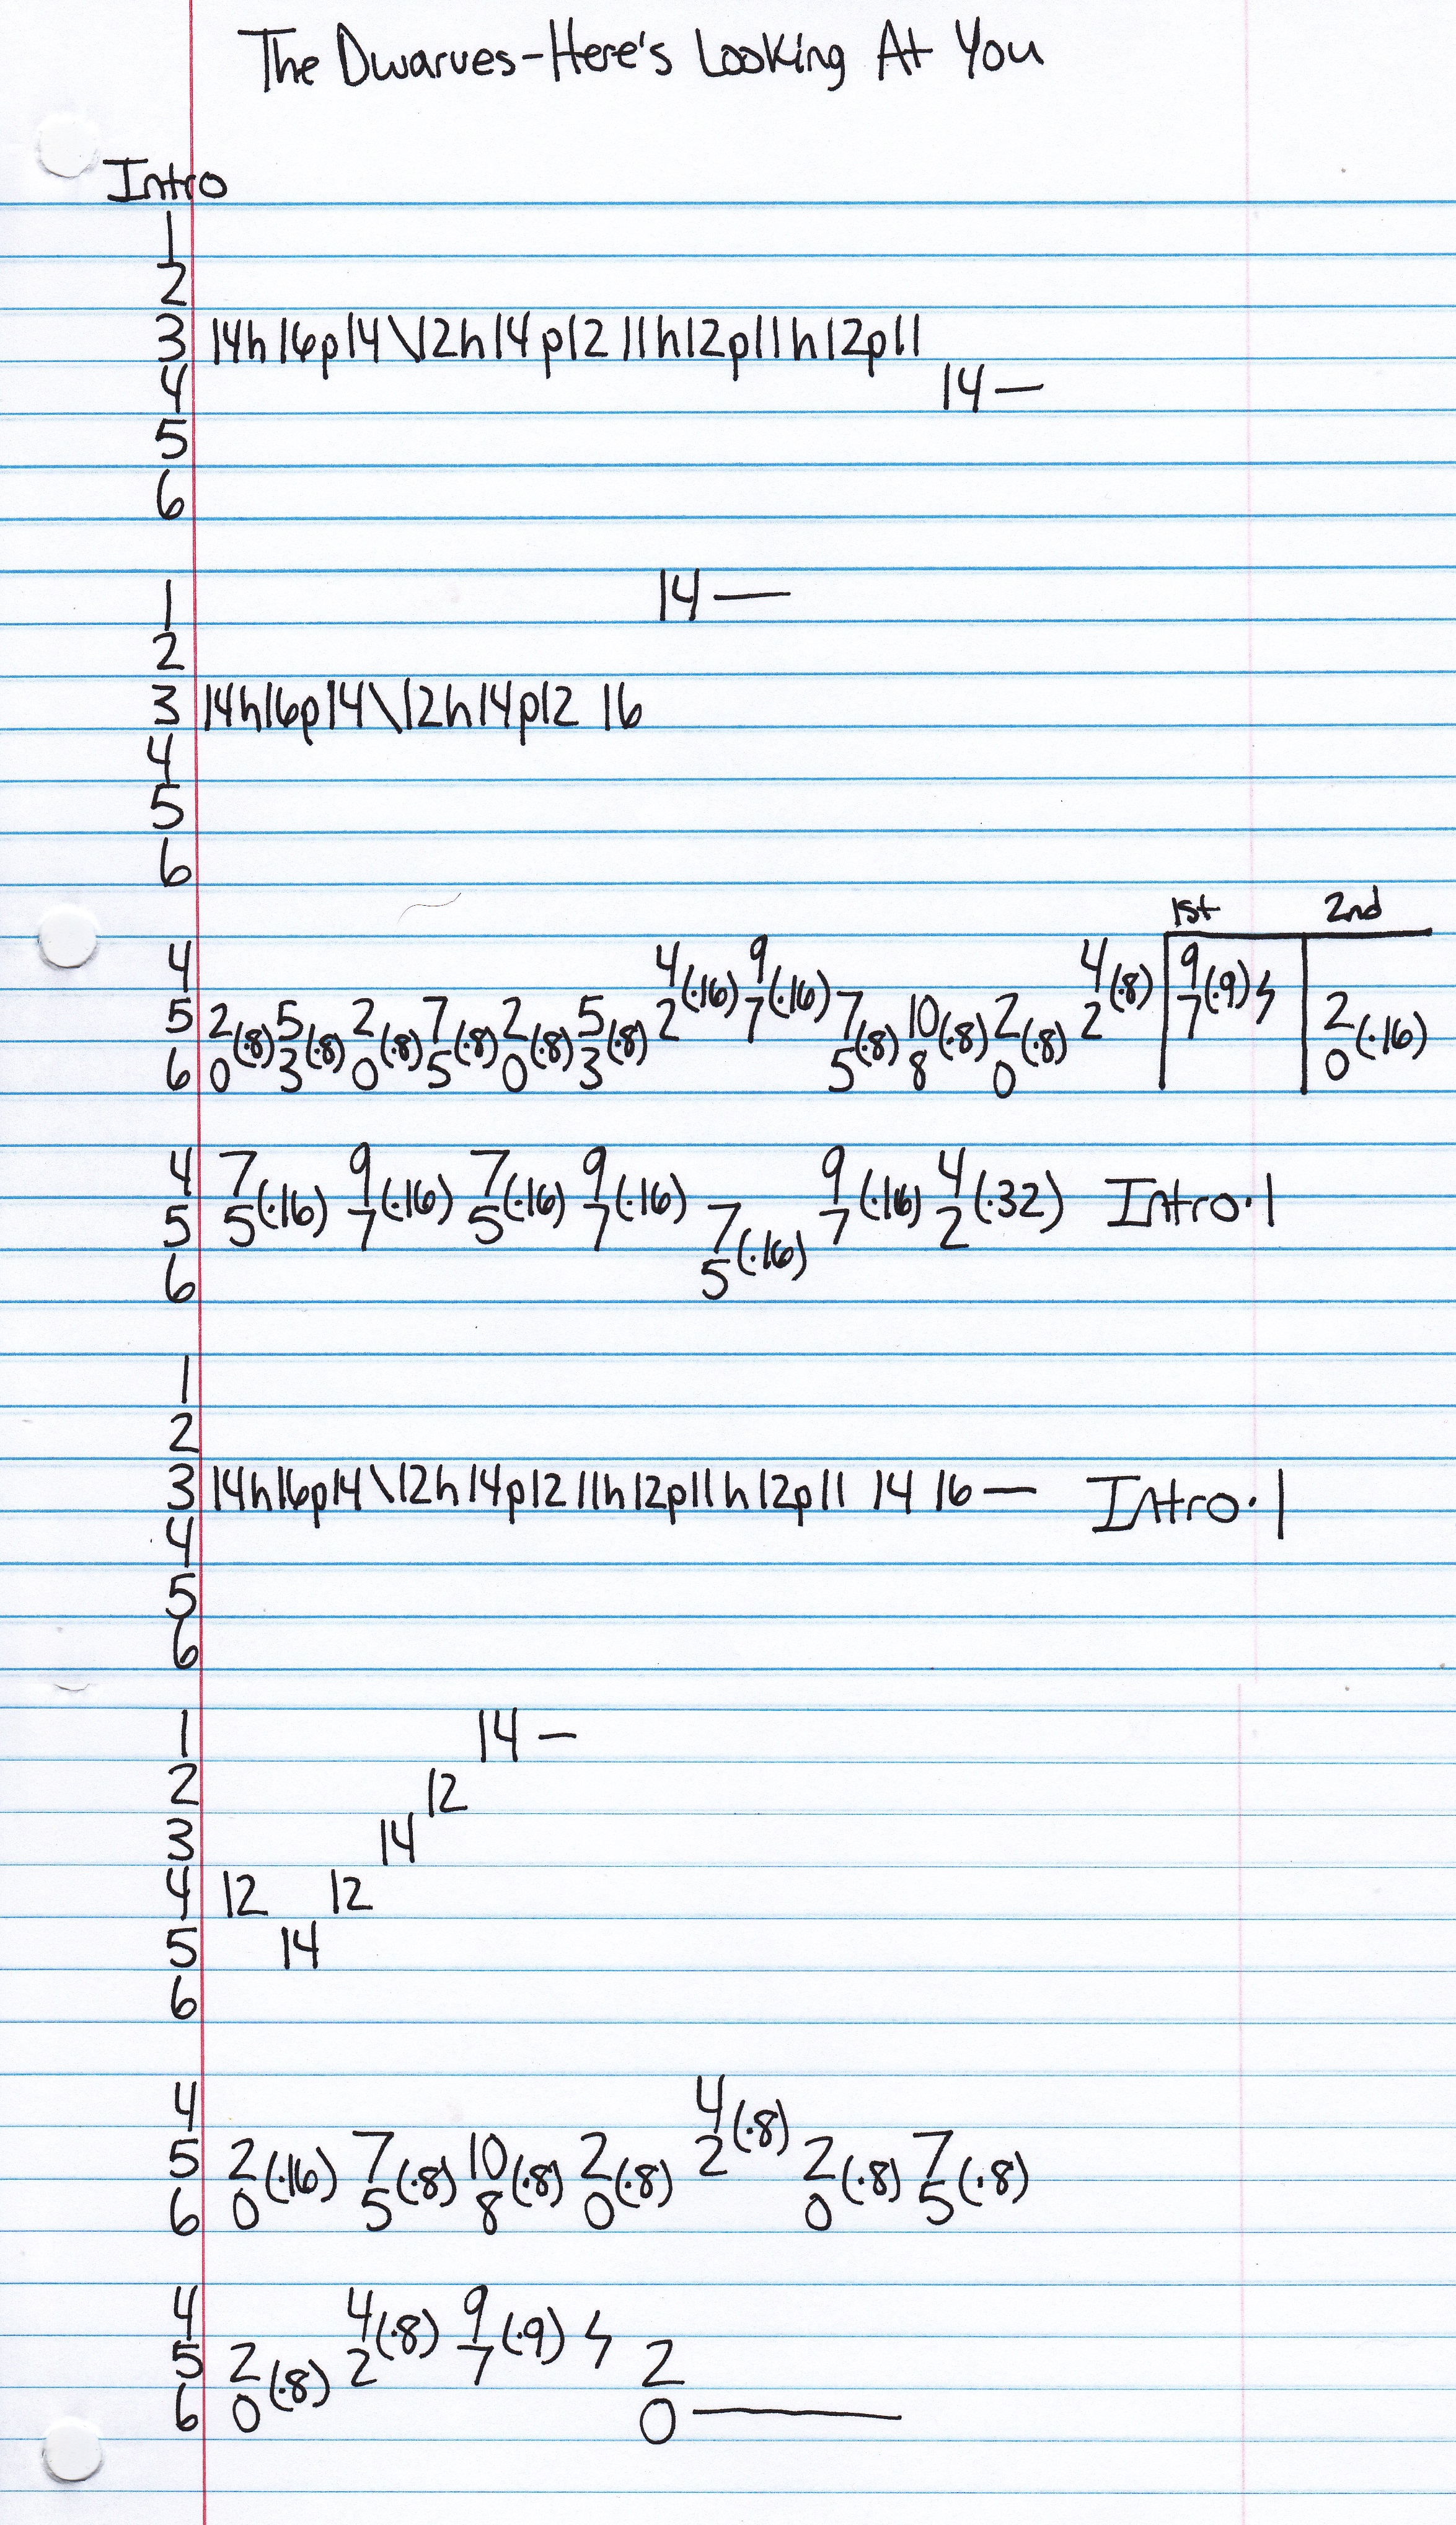 The Dwarves-Here's Looking At You
Intro
1
2
3 14h16p14\12h14p12 11h12p11h12p11
4 14—
5
6
1 14—
2
3 14h16p14\12h14p12 16
4
5
6
1st 2nd
4 4(·16) 9(·16) 4(·8) 9(·9)
5 2(·8) 5(·8) 2(·8) 7(·8) 2(·8) 5(·8) 2 7 7(·8) 10(·8) 2(·8) 2 7 2(·16)
6 0 3 0 5 0 3 5 8 0 0
4 7(·16) 9(·16) 7(·16) 9(·16) 9(·16) 4(·32) Intro·1
5 5 7 5 7 7(·16) 7 2
6 5
1
2
3 14h16p14\12h14p12 11h12p11h12p11 14 16— Intro·1
4
5
6
1 14—
2 12
3 14
4 12 12
5 14
6
4 4(·8)
5 2(·16) 7(·8) 10(·8) 2(·8) 2 2(·8) 7(·8)
6 0 5 8 0 0 5
4 4(·8) 9(·9)
5 2(·8) 2 7 2
6 0 0—